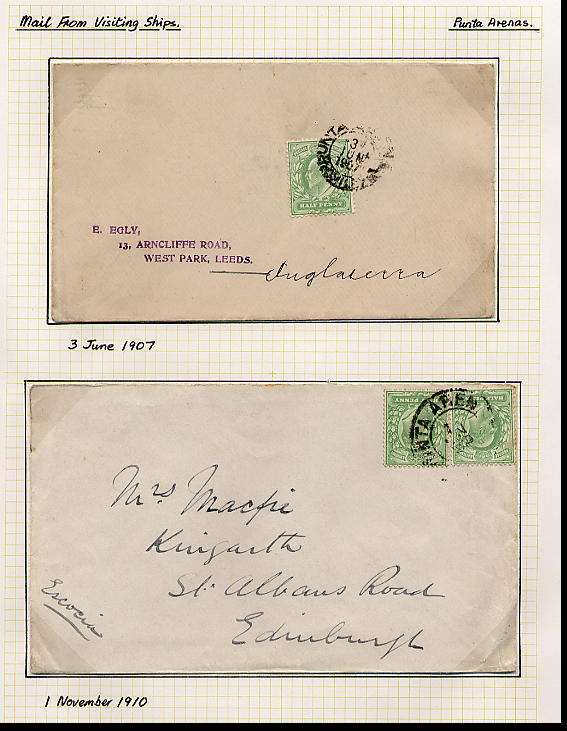 Mail From Visiting Ships.
Punta Arenas.
3
JUN
1907
HALF PENNY
E. EGLY,
13, ARNCLIFFE ROAD,
WEST PARK, LEEDS.
Inglaterra
3 June 1907
PUNTA AREN
Mrs Macfie
Kingarth
St. Albans Road
Edinburgh
Escocia
1 November 1910